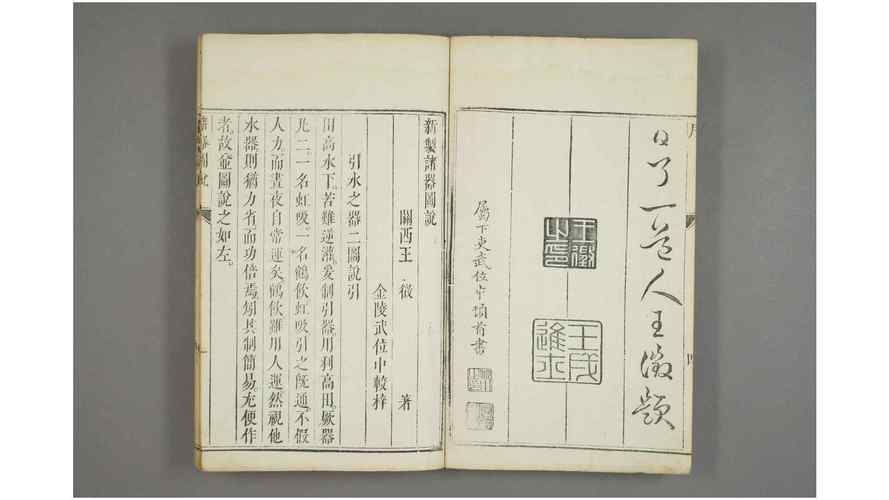 了一道人王徵題
王徵之印
壬戌進士
屬下東武位中頓首書
新製諸器圖說
關西王徵著
金陵武位中較梓
引水之器二圖說引
田高水下苦難逆灌爰制引器用利高田厥器
凡二一名虹吸一名鶴飲虹吸引之旣通不假
人力而晝夜自常運矣鶴飲雖用人運然視他
水器則猶力省而功倍焉矧其制簡易充便作
者故僉圖說之如左
諸器圖說
一